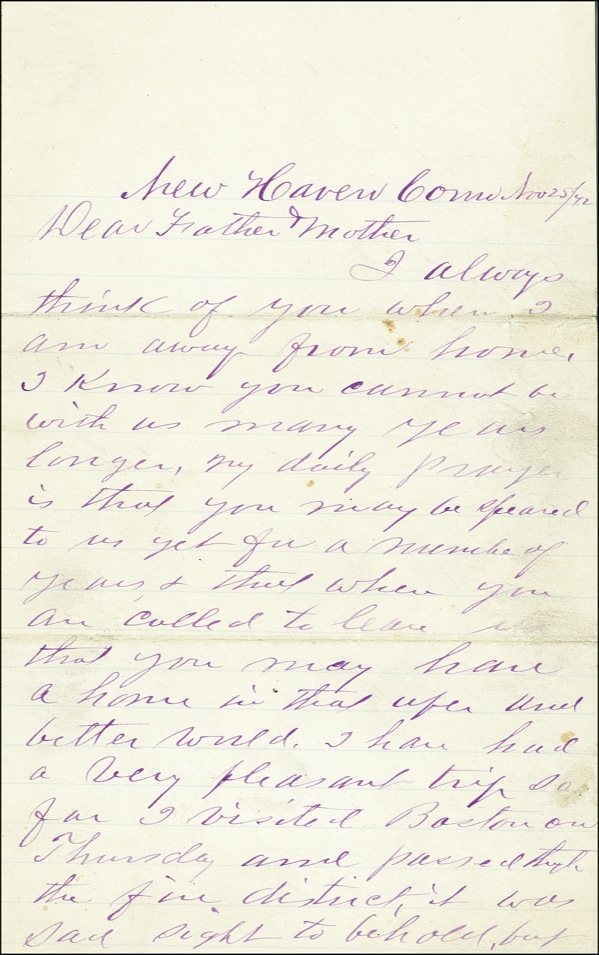 New Haven Conn Nov 25/72
Dear Father & Mother
I always
think of you when I
am away from home,
I Know you cannot be
with us many years
longer, my daily Prayer
is that you may be speared
to us yet for a number of
years, & that when you
are called to leave us
that you may have
a home in that uper and
better World. I have had
a Very pleasant trip so
far I visited Boston on
Thursday and passed through
the fire district, it was
sad sight to behold, but